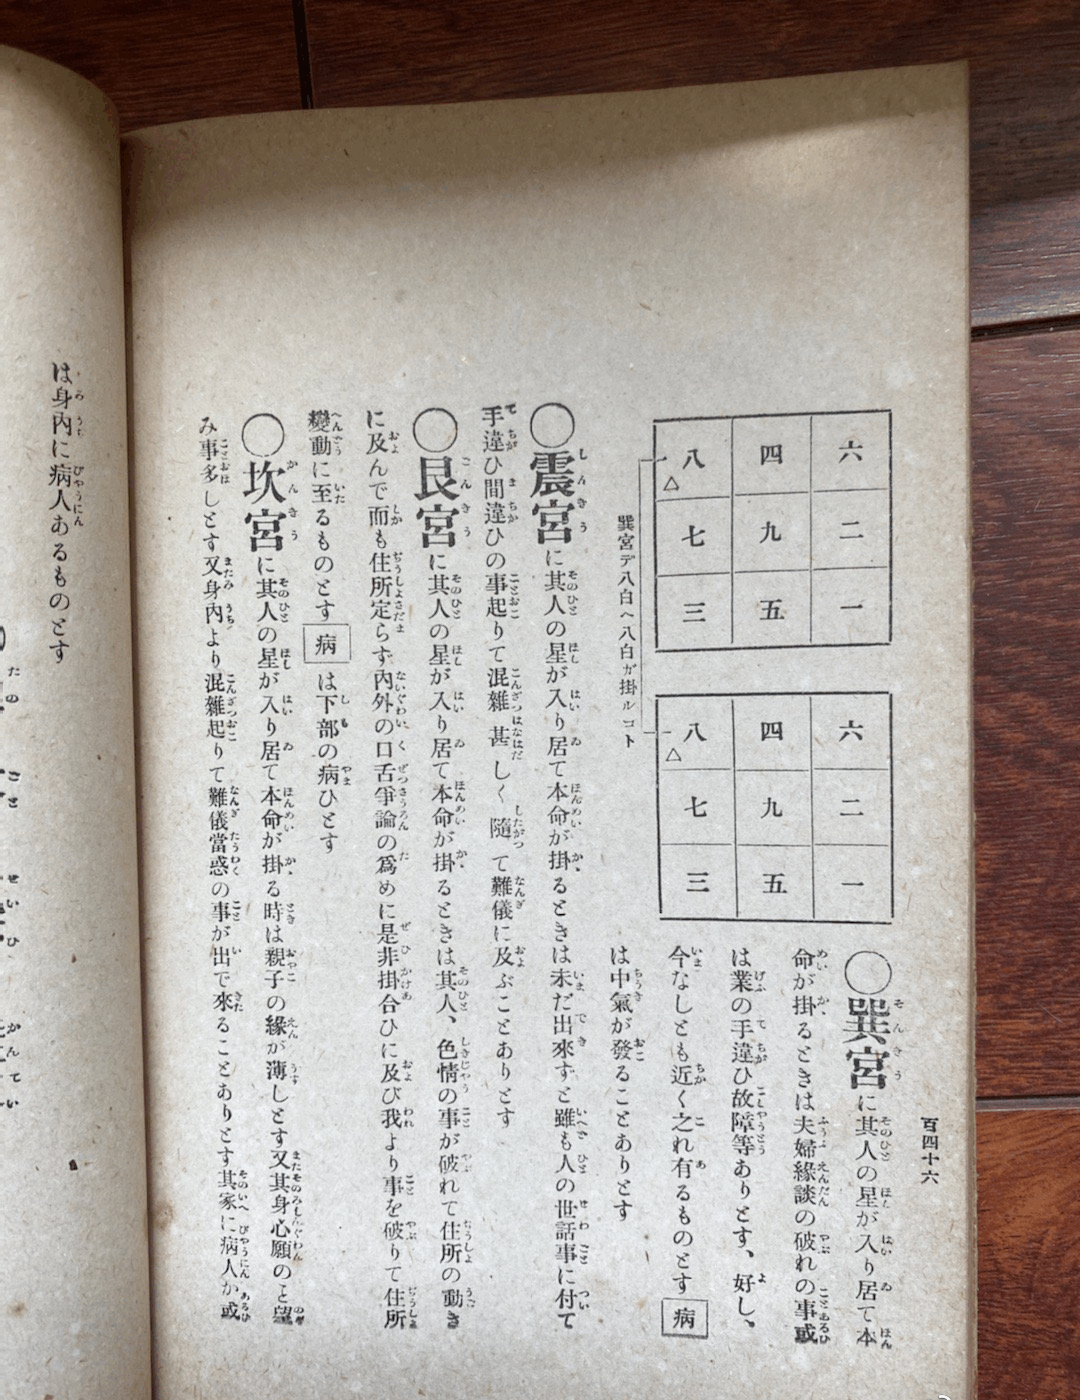 百四十六
六 四 八△
二 九 七
一 五 三
六 四 八△
二 九 七
一 五 三
巽宮デ八白ヘ八白ガ掛ルコト
〇巽宮に其人の星が入り居て本
命が掛るときは夫婦緣談の破れの事或
は業の手違ひ故障等ありとす、好し、
今なしとも近く之れ有るものとす 病
は中氣が發ることありとす
〇震宮に其人の星が入り居て本命が掛るときは未だ出來ずと雖も人の世話事に付て
手違ひ間違ひの事起りて混雜甚しく隨て難儀に及ぶことありとす
〇艮宮に其人の星が入り居て本命が掛るときは其人、色情の事が破れて住所の動き
に及んで而も住所定らず內外の口舌爭論の爲めに是非掛合ひに及び我より事を破りて住所
變動に至るものとす 病 は下部の病ひとす
〇坎宮に其人の星が入り居て本命が掛る時は親子の緣が薄しとす又其身心願のと望
み事多しとす又身內より混雜起りて難儀當惑の事が出で來ることありとす其家に病人か或
は身內に病人あるものとす